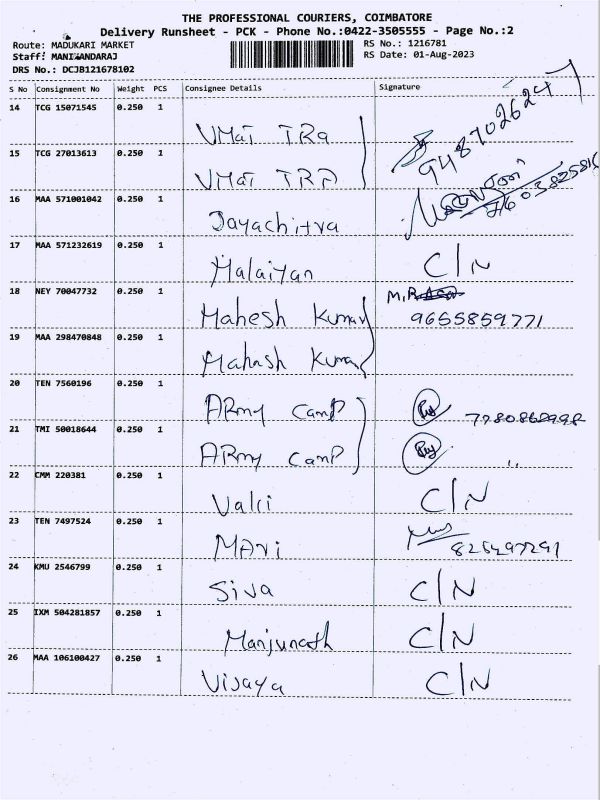 THE PROFESSIONAL COURIERS, COIMBATORE
Delivery Runsheet - PCK - Phone No.:0422-3505555 - Page No.:2
Route: MADUKARI MARKET RS No.: 1216781
Staff: MANIKANDARAJ RS Date: 01-Aug-2023
DRS No.: DCJB121678102
S No Consignment No Weight PCS Consignee Details Signature
14 TCG 15071545 0.250 1 VMaT TRa 9487026247
15 TCG 27013613 0.250 1 VMaT TRA
16 MAA 571001042 0.250 1 Jayachitra
17 MAA 571232619 0.250 1 Malaiyan C/N
18 NEY 70047732 0.250 1 Mahesh Kumar M.R 9655859771
19 MAA 298470848 0.250 1 Mahash Kumar
20 TEN 7560196 0.250 1 ARmy camP
21 TMI 50018644 0.250 1 ARmy camP
22 CMM 220381 0.250 1 Valli C/N
23 TEN 7497524 0.250 1 MAri
24 KMU 2546799 0.250 1 Siva C/N
25 IXM 504281857 0.250 1 Manjunath C/N
26 MAA 106100427 0.250 1 Vijaya C/N